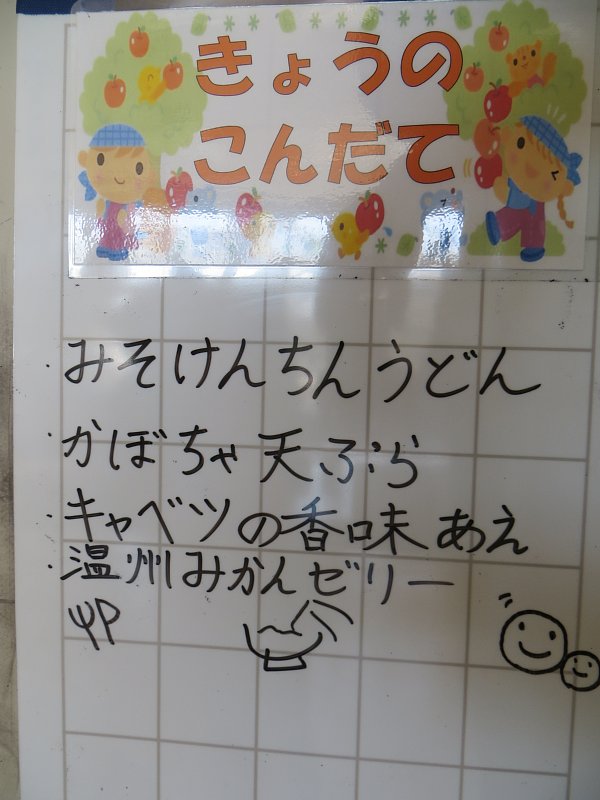 きょうの
こんだて
・みそけんちんうどん
・かぼちゃ天ぷら
・キャベツの香味あえ
・温州みかんゼリー